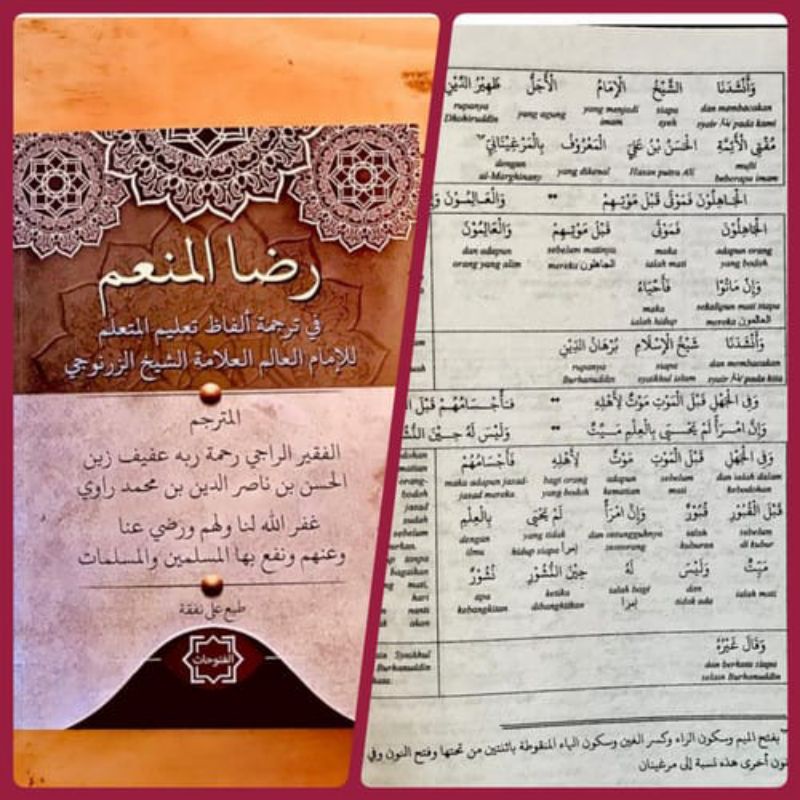 رضا المنعم
في ترجمة ألفاظ تعليم المتعلم
للإمام العالم العلامة الشيخ الزرنوجي
المترجم
الفقير الراجي رحمة ربه عفيف زين
الحسن بن ناصر الدين بن محمد راوي
غفر الله لنا ولهم ورضي عنا
وعنهم ونفع بها المسلمين والمسلمات
طبع على نفقة
الفتوحات
وَأَنْشَدَنَا الشَّيْخُ الْإِمَامُ الْأَجَلُّ ظَهِيْرُ الدِّيْنِ
dan membacakan siapa yang menjadi yang agung rupanya
syair pada kami syeh imam Dhohiruddin
مُفْتِي الْأَئِمَّةِ الْحَسَنُ بْنُ عَلِيٍّ الْمَعْرُوْفُ بِالْمَرْغِيْنَانِيِّ
mufti Hasan putra Ali yang dikenal dengan
beberapa imam al-Marghinany
الْجَاهِلُوْنَ فَمَوْتَى قَبْلَ مَوْتِهِمْ وَالْعَالِمُوْنَ
الْجَاهِلُوْنَ فَمَوْتَى قَبْلَ مَوْتِهِمْ وَالْعَالِمُوْنَ
adapun orang maka sebelum matinya dan adapun
yang bodoh ialah mati mereka الجاهلون orang yang alim
وَإِنْ مَاتُوْا فَأَحْيَاءُ
sekalipun mati siapa maka
mereka العالمون ialah hidup
وَأَنْشَدَنَا شَيْخُ الْإِسْلَامِ بُرْهَانُ الدِّيْنِ
dan membacakan siapa rupanya
syair pada kita syaikhul islam Burhanuddin
وَفِى الْجَهْلِ قَبْلَ الْمَوْتِ مَوْتٌ لِأَهْلِهِ فَأَجْسَامُهُمْ قَبْلَ
وَإِنَّ امْرَأً لَمْ يَحْيَى بِالْعِلْمِ مَيِّتٌ وَلَيْسَ لَهُ حِيْنَ
وَفِى الْجَهْلِ قَبْلَ الْمَوْتِ مَوْتٌ لِأَهْلِهِ فَأَجْسَامُهُمْ
dan ialah dalam sebelum adapun bagi orang maka adapun jasad-
kebodohan mati kematian yang bodoh jasad mereka
قَبْلَ الْقُبُوْرِ قُبُوْرٌ وَإِنَّ امْرَأً لَمْ يَحْيَى بِالْعِلْمِ
sebelum ialah dan sesungguhnya yang tidak dengan
di kubur kuburan seseorang hidup siapa ilmu
مَيِّتٌ وَلَيْسَ لَهُ حِيْنَ النُّشُوْرِ نُشُوْرٌ
ialah mati dan ialah bagi ketika apa
tidak ada dibangkitkan kebangkitan
وَقَالَ غَيْرُهُ
dan berkata siapa
selain Burhanuddin
بفتح الميم وسكون الراء وكسر الغين وسكون الياء المنقوطة باثنتين من تحتها وفتح النون وفي
نون أخرى هذه نسبة إلى مرغينان